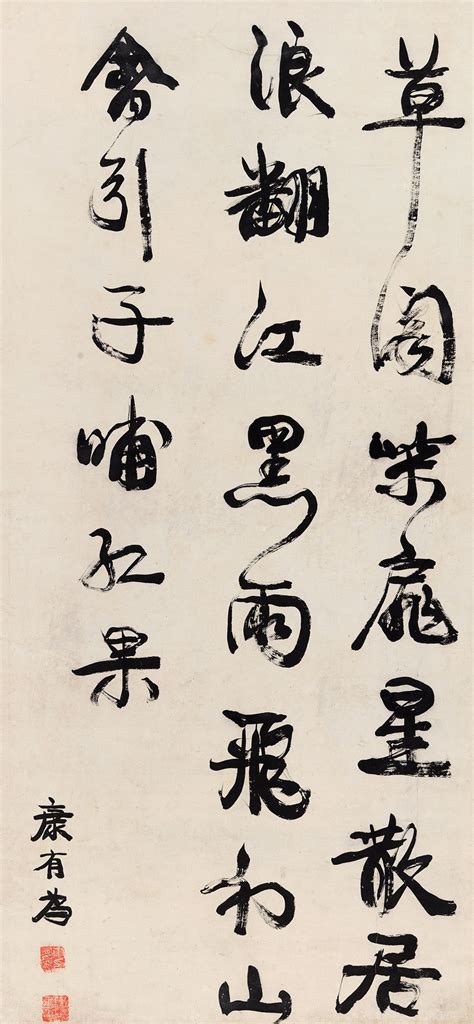 草阁柴扉星散居
浪翻江黑雨飛初山
禽引子哺红果
康有為